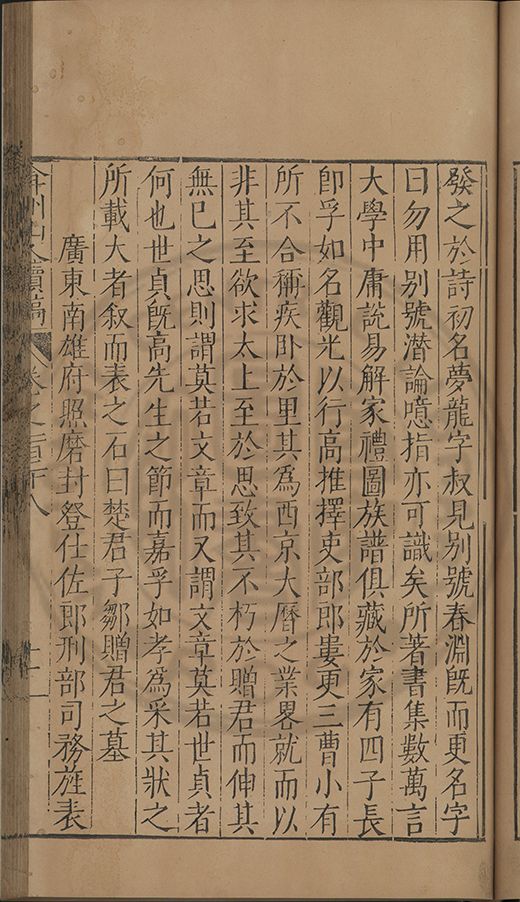 發之於詩初名夢龍字叔見别號春淵既而更名字
曰勿用别號潜論噫指亦可識矣所著書集數萬言
大學中庸說易解家禮圖族譜俱藏於家有四子長
卽孚如名觀光以行高推擇吏部郎婁更三曹小有
所不合稱疾卧於里其爲西京大曆之業畧就而以
非其至欲求太上至於思致其不朽於贈君而伸其
無已之思則謂莫若文章而又謂文章莫若世貞者
何也世貞旣高先生之節而嘉孚如孝爲采其狀之
所載大者叙而表之石曰楚君子鄒贈君之墓
廣東南雄府照磨封登仕佐郎刑部司務旌表
弇州山人續稿 卷之一百二十八